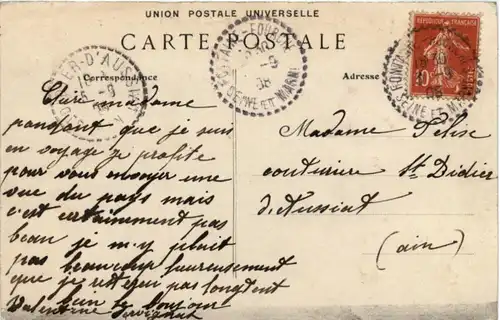 UNION POSTALE UNIVERSELLE
CARTE POSTALE
Correspondance
Adresse
REPUBLIQUE FRANÇAISE
10
SEINE ET MARNE
Madame
pandant que je suis
en voyage je profite
pour vous envoyer une
vue du pays mais
c'est certainement pas
beau je m'y plait
pas beaucoup heureusement
que je rest pas longtent
bonjour
Valentine
Madame Felise
couturiere St Didier
d'Aussiat
(ain)